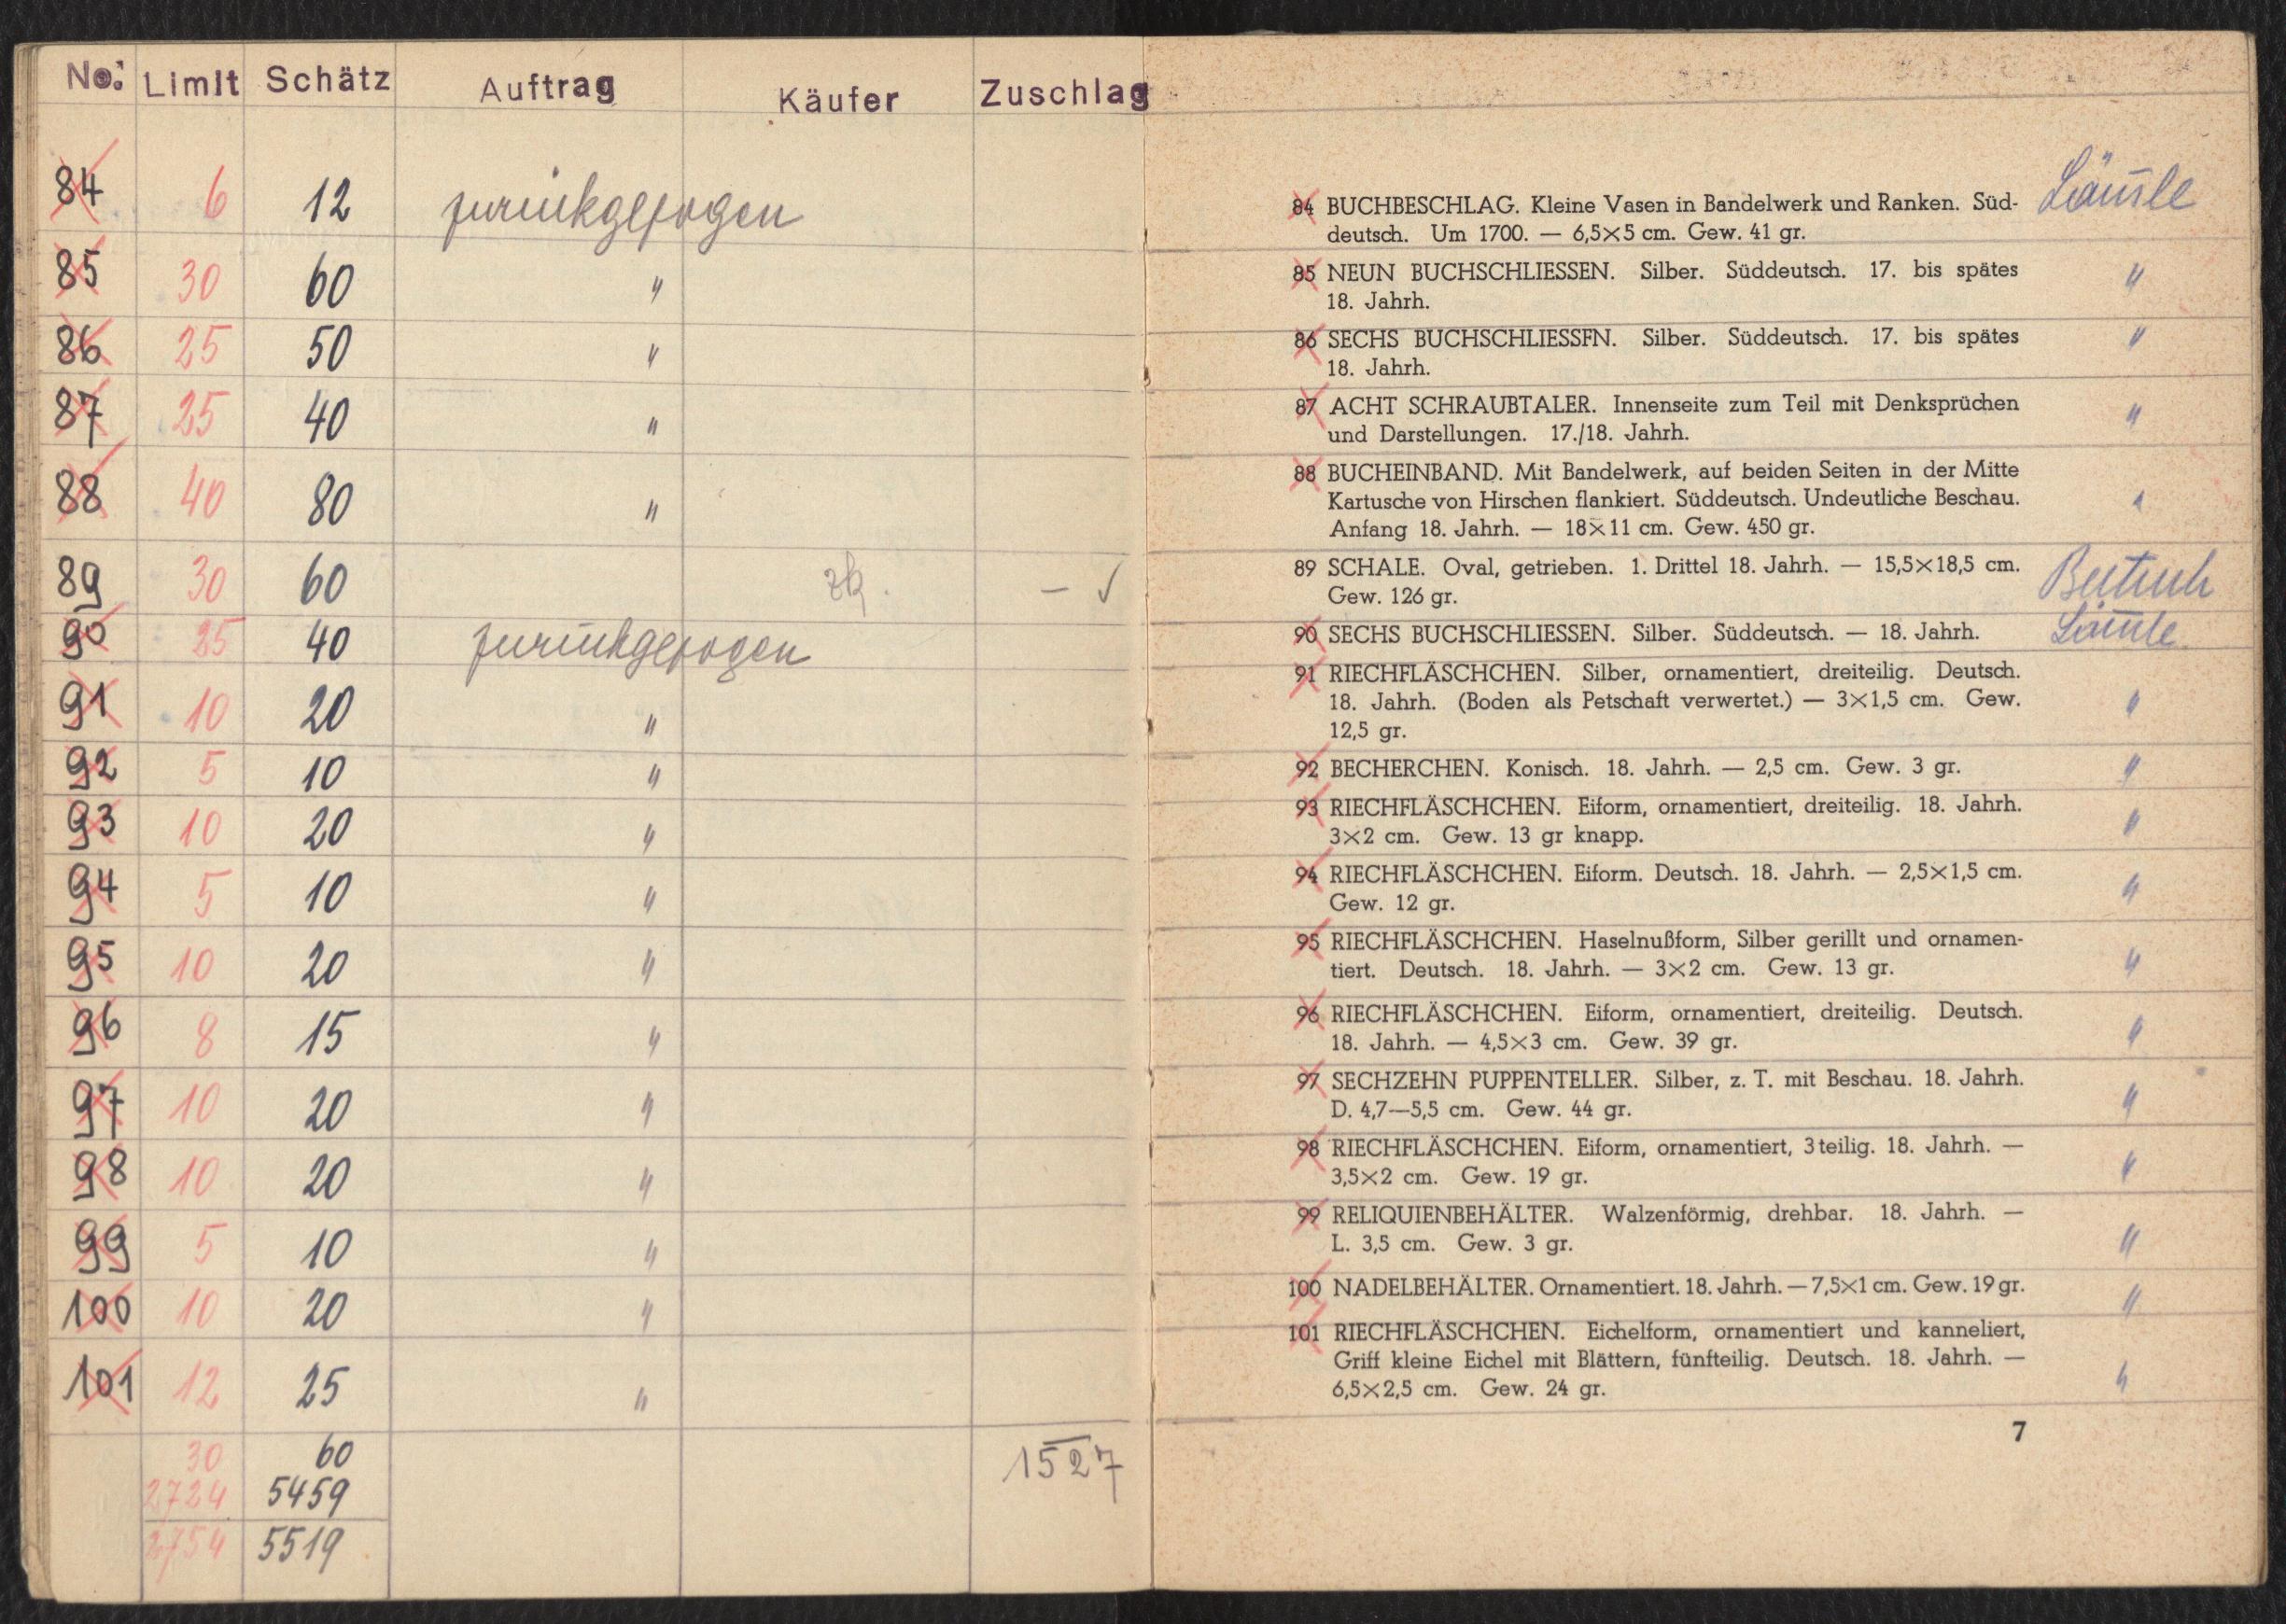 No: Limit Schätz Auftrag Käufer Zuschlag
84 6 12 zurückgezogen
85 30 60 "
86 25 50 "
87 25 40 "
88 40 80 "
89 30 60 zk. – ✓
90 25 40 zurückgezogen
91 10 20 "
92 5 10 "
93 10 20 "
94 5 10 "
95 10 20 "
96 8 15 "
97 10 20 "
98 10 20 "
99 5 10 "
100 10 20 "
101 12 25 "
30 60
2724 5459 1527
2754 5519
84 BUCHBESCHLAG. Kleine Vasen in Bandelwerk und Ranken. Süd-
deutsch. Um 1700. — 6,5×5 cm. Gew. 41 gr.
85 NEUN BUCHSCHLIESSEN. Silber. Süddeutsch. 17. bis spätes "
18. Jahrh.
86 SECHS BUCHSCHLIESSFN. Silber. Süddeutsch. 17. bis spätes "
18. Jahrh.
87 ACHT SCHRAUBTALER. Innenseite zum Teil mit Denksprüchen "
und Darstellungen. 17./18. Jahrh.
88 BUCHEINBAND. Mit Bandelwerk, auf beiden Seiten in der Mitte
Kartusche von Hirschen flankiert. Süddeutsch. Undeutliche Beschau. "
Anfang 18. Jahrh. — 18×11 cm. Gew. 450 gr.
89 SCHALE. Oval, getrieben. 1. Drittel 18. Jahrh. — 15,5×18,5 cm.
Gew. 126 gr.
90 SECHS BUCHSCHLIESSEN. Silber. Süddeutsch. — 18. Jahrh.
91 RIECHFLÄSCHCHEN. Silber, ornamentiert, dreiteilig. Deutsch.
18. Jahrh. (Boden als Petschaft verwertet.) — 3×1,5 cm. Gew. "
12,5 gr.
92 BECHERCHEN. Konisch. 18. Jahrh. — 2,5 cm. Gew. 3 gr. "
93 RIECHFLÄSCHCHEN. Eiform, ornamentiert, dreiteilig. 18. Jahrh. "
3×2 cm. Gew. 13 gr knapp.
94 RIECHFLÄSCHCHEN. Eiform. Deutsch. 18. Jahrh. — 2,5×1,5 cm. "
Gew. 12 gr.
95 RIECHFLÄSCHCHEN. Haselnußform, Silber gerillt und ornamen-
tiert. Deutsch. 18. Jahrh. — 3×2 cm. Gew. 13 gr. "
96 RIECHFLÄSCHCHEN. Eiform, ornamentiert, dreiteilig. Deutsch.
18. Jahrh. — 4,5×3 cm. Gew. 39 gr. "
97 SECHZEHN PUPPENTELLER. Silber, z. T. mit Beschau. 18. Jahrh.
D. 4,7—5,5 cm. Gew. 44 gr. "
98 RIECHFLÄSCHCHEN. Eiform, ornamentiert, 3teilig. 18. Jahrh. —
3,5×2 cm. Gew. 19 gr. "
99 RELIQUIENBEHÄLTER. Walzenförmig, drehbar. 18. Jahrh. —
L. 3,5 cm. Gew. 3 gr. "
100 NADELBEHÄLTER. Ornamentiert. 18. Jahrh. — 7,5×1 cm. Gew. 19 gr. "
101 RIECHFLÄSCHCHEN. Eichelform, ornamentiert und kanneliert,
Griff kleine Eichel mit Blättern, fünfteilig. Deutsch. 18. Jahrh. —
6,5×2,5 cm. Gew. 24 gr. "
7